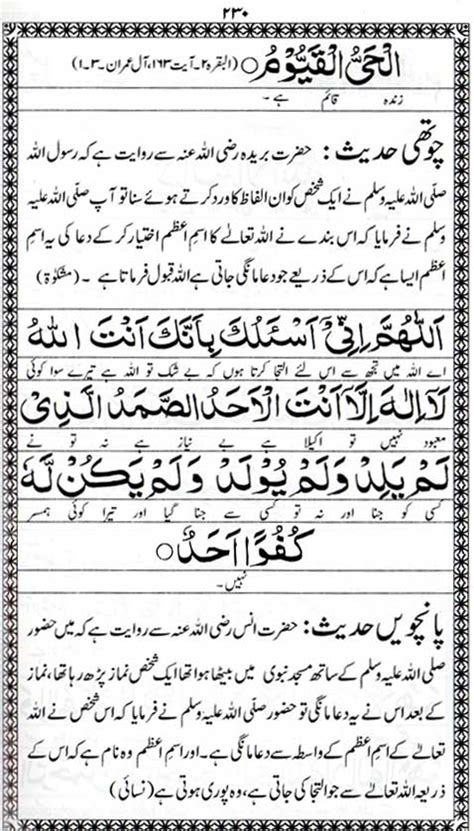 ۲۳۰
الْحَیُّ الْقَیُّوْمُ ○ (البقرہ ۲۔ آیت ۱۶۳، آل عمران ۔ ۳۔۱)
زندہ قائم ہے ۔
چوتھی حدیث : حضرت بریدہ رضی اللہ عنہ سے روایت ہے کہ رسول اللہ
صلی اللہ علیہ وسلم نے ایک شخص کو ان الفاظ کا ورد کرتے ہوئے سنا تو آپ صلی اللہ علیہ
وسلم نے فرمایا کہ اس بندے نے اللہ تعالےٰ کا اسمِ اعظم اختیار کر کے دعا کی یہ اسمِ
اعظم ایسا ہے کہ اس کے ذریعے جو دعا مانگی جاتی ہے اللہ قبول فرماتا ہے ۔ (مشکوٰۃ)
اَللّٰهُمَّ اِنِّیْ اَسْئَلُكَ بِاَنَّكَ اَنْتَ اللّٰهُ
اے اللہ میں تجھ سے اس لئے التجا کرتا ہوں کہ بے شک تو اللہ ہے تیرے سوا کوئی
لَا اِلٰهَ اِلَّا اَنْتَ الْاَحَدُ الصَّمَدُ الَّذِیْ
معبود نہیں تو اکیلا ہے بے نیاز ہے نہ تو نے
لَمْ یَلِدْ وَلَمْ یُوْلَدْ وَلَمْ یَكُنْ لَّهٗ
کسی کو جنا اور نہ تو کسی سے جنا گیا اور تیرا کوئی ہمسر
كُفُوًا اَحَدٌ ○
نہیں۔
پانچویں حدیث : حضرت انس رضی اللہ عنہ سے روایت ہے کہ میں حضور
صلی اللہ علیہ وسلم کے ساتھ مسجد نبوی میں بیٹھا ہوا تھا ایک شخص نماز پڑھ رہا تھا، نماز
کے بعد اس نے یہ دعا مانگی تو حضور صلی اللہ علیہ وسلم نے فرمایا کہ اس شخص نے اللہ
تعالےٰ کے اسمِ اعظم کے واسطہ سے دعا مانگی ہے۔ اور اسمِ اعظم وہ نام ہے کہ اس کے
ذریعہ اللہ تعالےٰ سے جو التجا کی جاتی ہے، وہ پوری ہوتی ہے (نسائی)